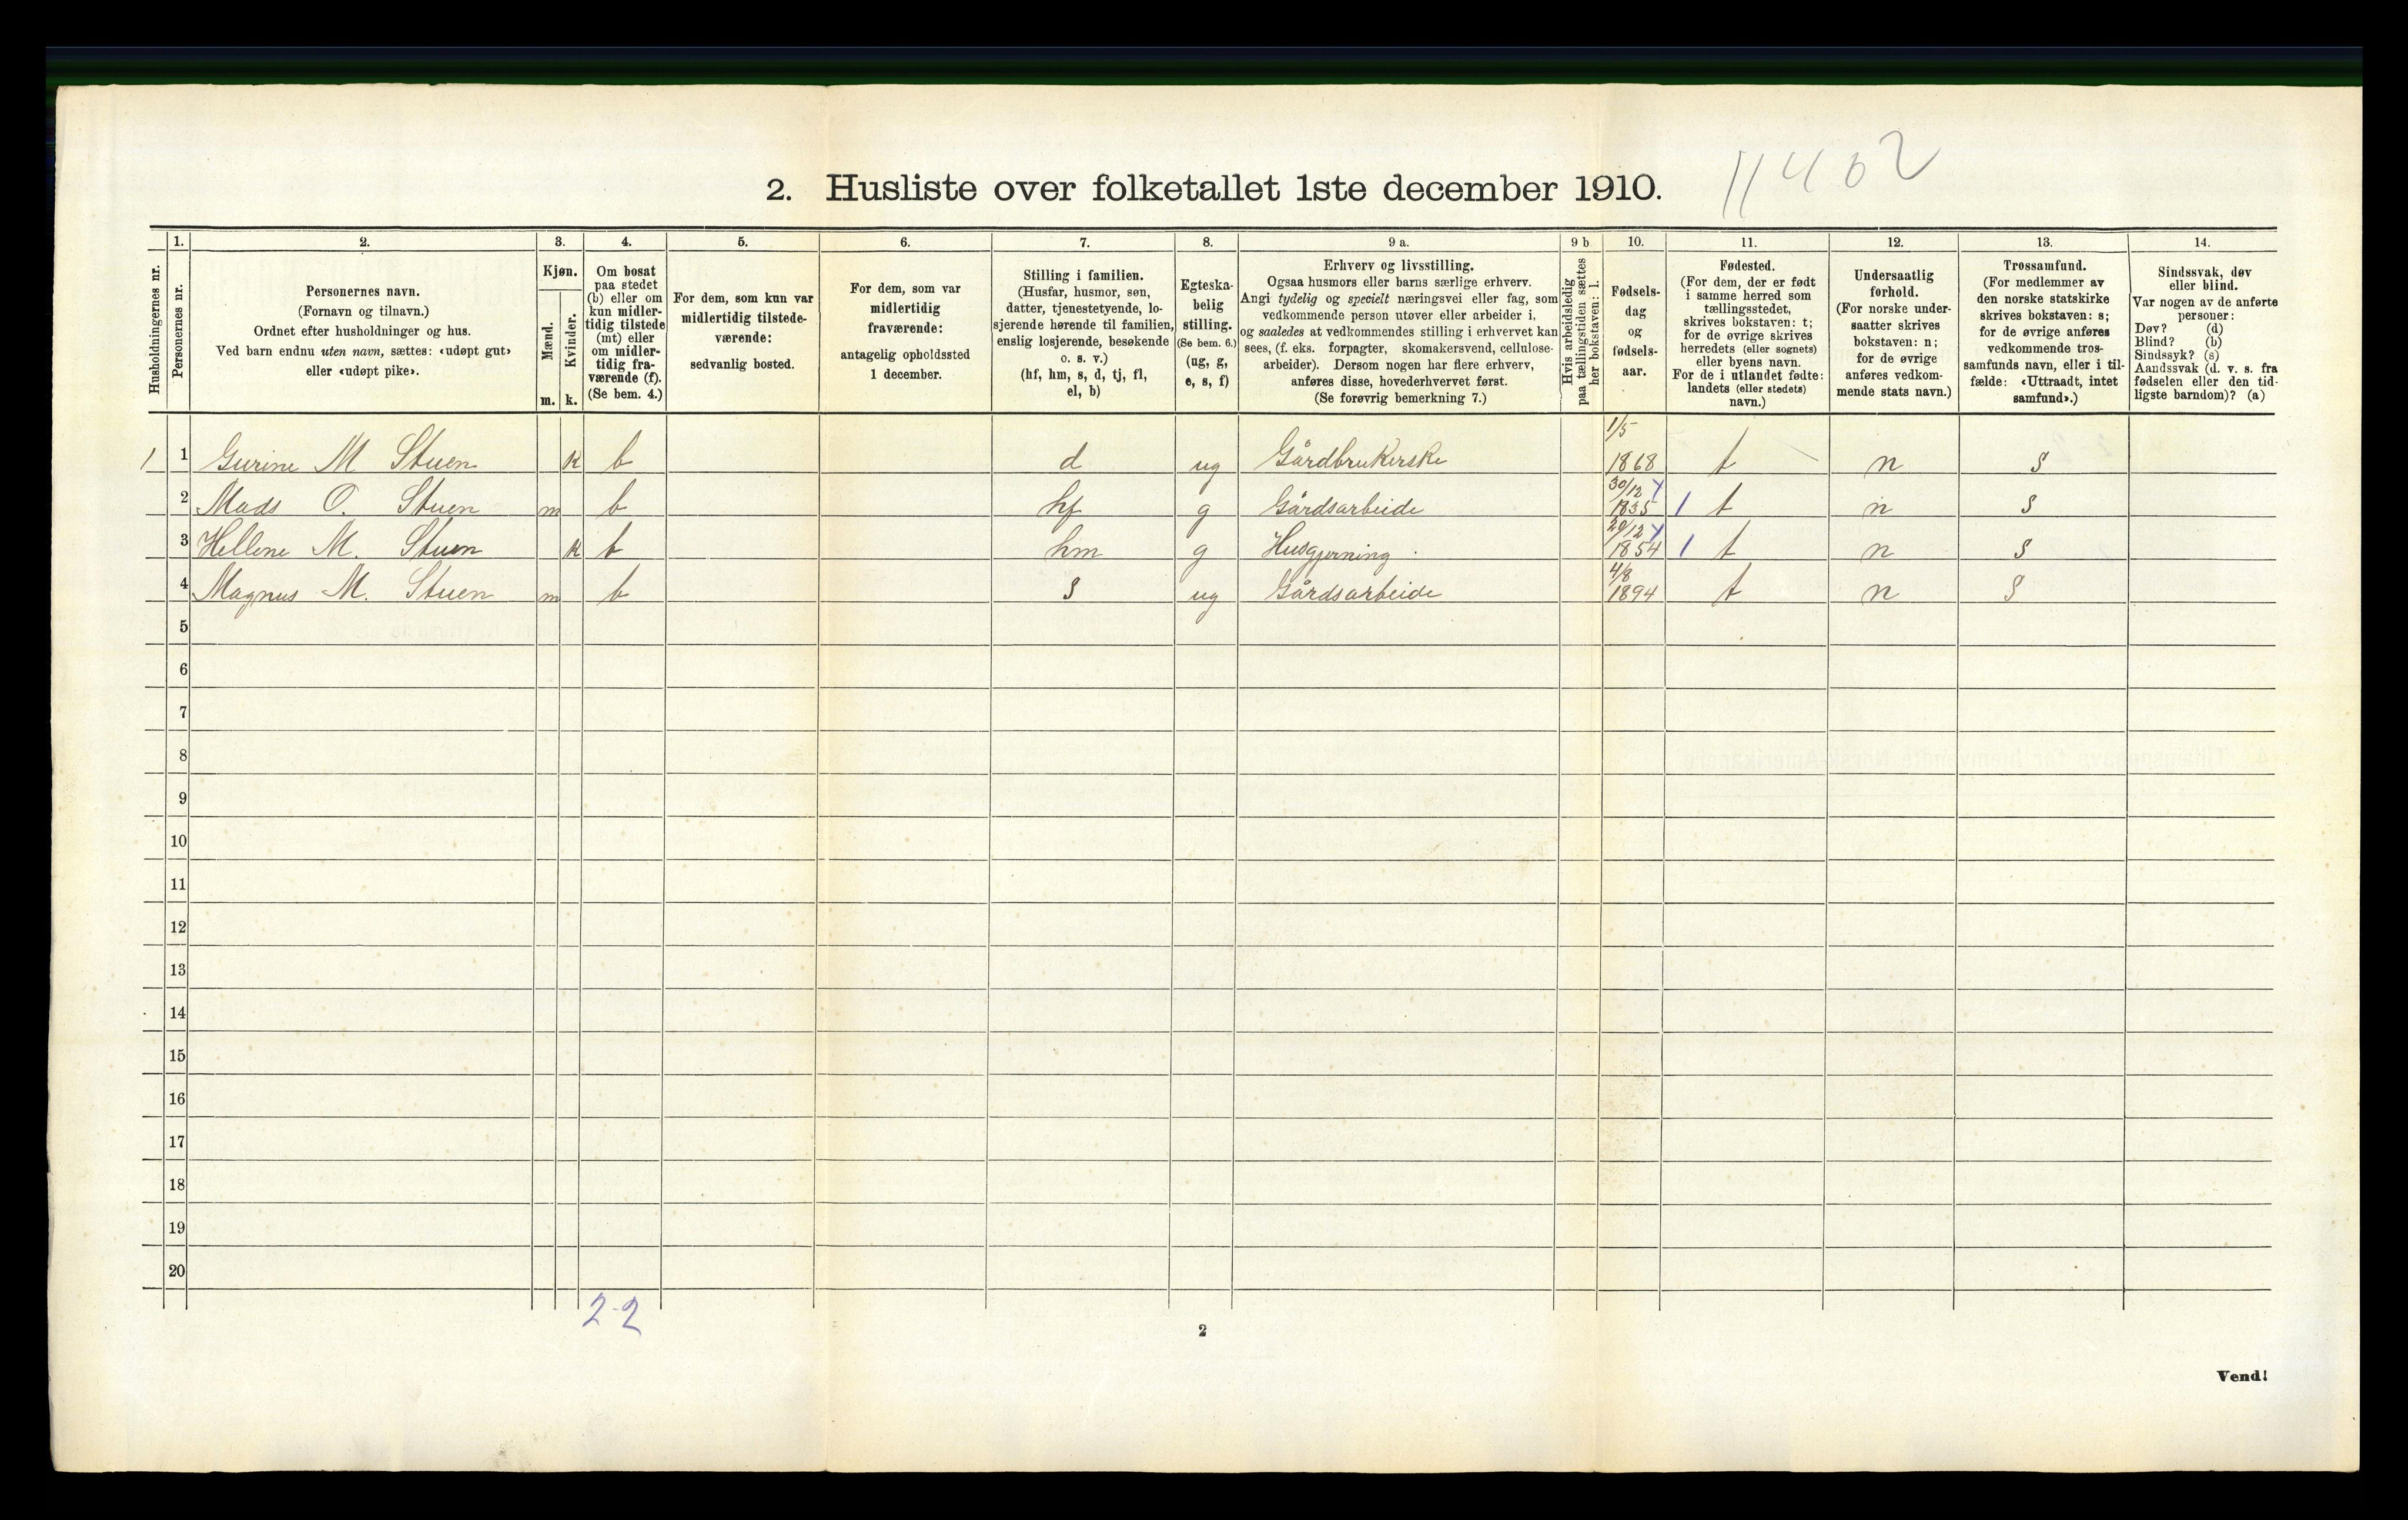 11402
2. Husliste over folketallet 1ste december 1910.
1. 2. 3. 4. 5. 6. 7. 8. 9 a. 9 b 10. 11. 12. 13. 14.
Husholdningernes nr.
Personernes nr.
Personernes navn.
(Fornavn og tilnavn.)
Ordnet efter husholdninger og hus.
Ved barn endnu uten navn, sættes: «udøpt gut»
eller «udøpt pike».
Kjøn.
Mænd.
Kvinder.
m. k.
Om bosat
paa stedet
(b) eller om
kun midler-
tidig tilstede
(mt) eller
om midler-
tidig fra-
værende (f).
(Se bem. 4.)
For dem, som kun var
midlertidig tilstede-
værende:
sedvanlig bosted.
For dem, som var
midlertidig
fraværende:
antagelig opholdssted
1 december.
Stilling i familien.
(Husfar, husmor, søn,
datter, tjenestetyende, lo-
sjerende hørende til familien,
enslig losjerende, besøkende
o. s. v.)
(hf, hm, s, d, tj, fl,
el, b)
Egteska-
belig
stilling.
(Se bem. 6.)
(ug, g,
e, s, f)
Erhverv og livsstilling.
Ogsaa husmors eller barns særlige erhverv.
Angi tydelig og specielt næringsvei eller fag, som
vedkommende person utøver eller arbeider i,
og saaledes at vedkommendes stilling i erhvervet kan
sees, (f. eks. forpagter, skomakersvend, cellulose-
arbeider). Dersom nogen har flere erhverv,
anføres disse, hovederhvervet først.
(Se forøvrig bemerkning 7.)
Hvis arbeidsledig
paa tællingstiden sættes
her bokstaven: l.
Fødsels-
dag
og
fødsels-
aar.
Fødested.
(For dem, der er født
i samme herred som
tællingsstedet,
skrives bokstaven: t;
for de øvrige skrives
herredets (eller sognets)
eller byens navn.
For de i utlandet fødte:
landets (eller stedets)
navn.)
Undersaatlig
forhold.
(For norske under-
saatter skrives
bokstaven: n;
for de øvrige
anføres vedkom-
mende stats navn.)
Trossamfund.
(For medlemmer av
den norske statskirke
skrives bokstaven: s;
for de øvrige anføres
vedkommende tros-
samfunds navn, eller i til-
fælde: «Uttraadt, intet
samfund».)
Sindssvak, døv
eller blind.
Var nogen av de anførte
personer:
Døv? (d)
Blind? (b)
Sindssyk? (s)
Aandssvak (d. v. s. fra
fødselen eller den tid-
ligste barndom)? (a)
1 1 Gurine M Stuen k b d ug Gårdbrukerske 1/5 1868 t n s
2 Mads O. Stuen m b hf g Gårdsarbeide 30/12 1835 1 t n s
3 Hellene M. Stuen k b hm g Husgjerning 20/12 1854 1 t n s
4 Magnus M. Stuen m b s ug Gårdsarbeide 4/8 1894 t n s
5
6
7
8
9
10
11
12
13
14
15
16
17
18
19
20
2-2
2
Vend!